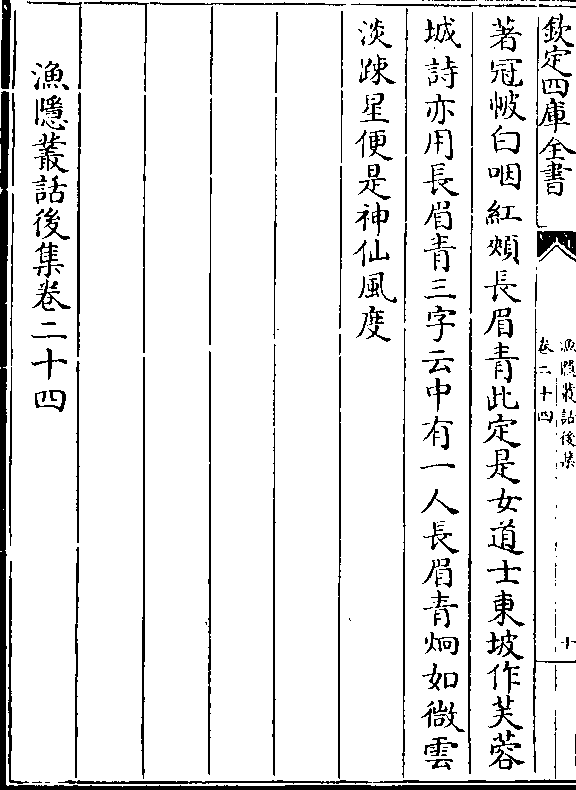 欽定四庫全書
漁隱叢話後集
卷二十四
十
著冠帔白咽紅頰長眉青此定是女道士東坡作芙蓉
城詩亦用長眉青三字云中有一人長眉青炯如微雲
淡疎星便是神仙風度
漁隱叢話後集卷二十四